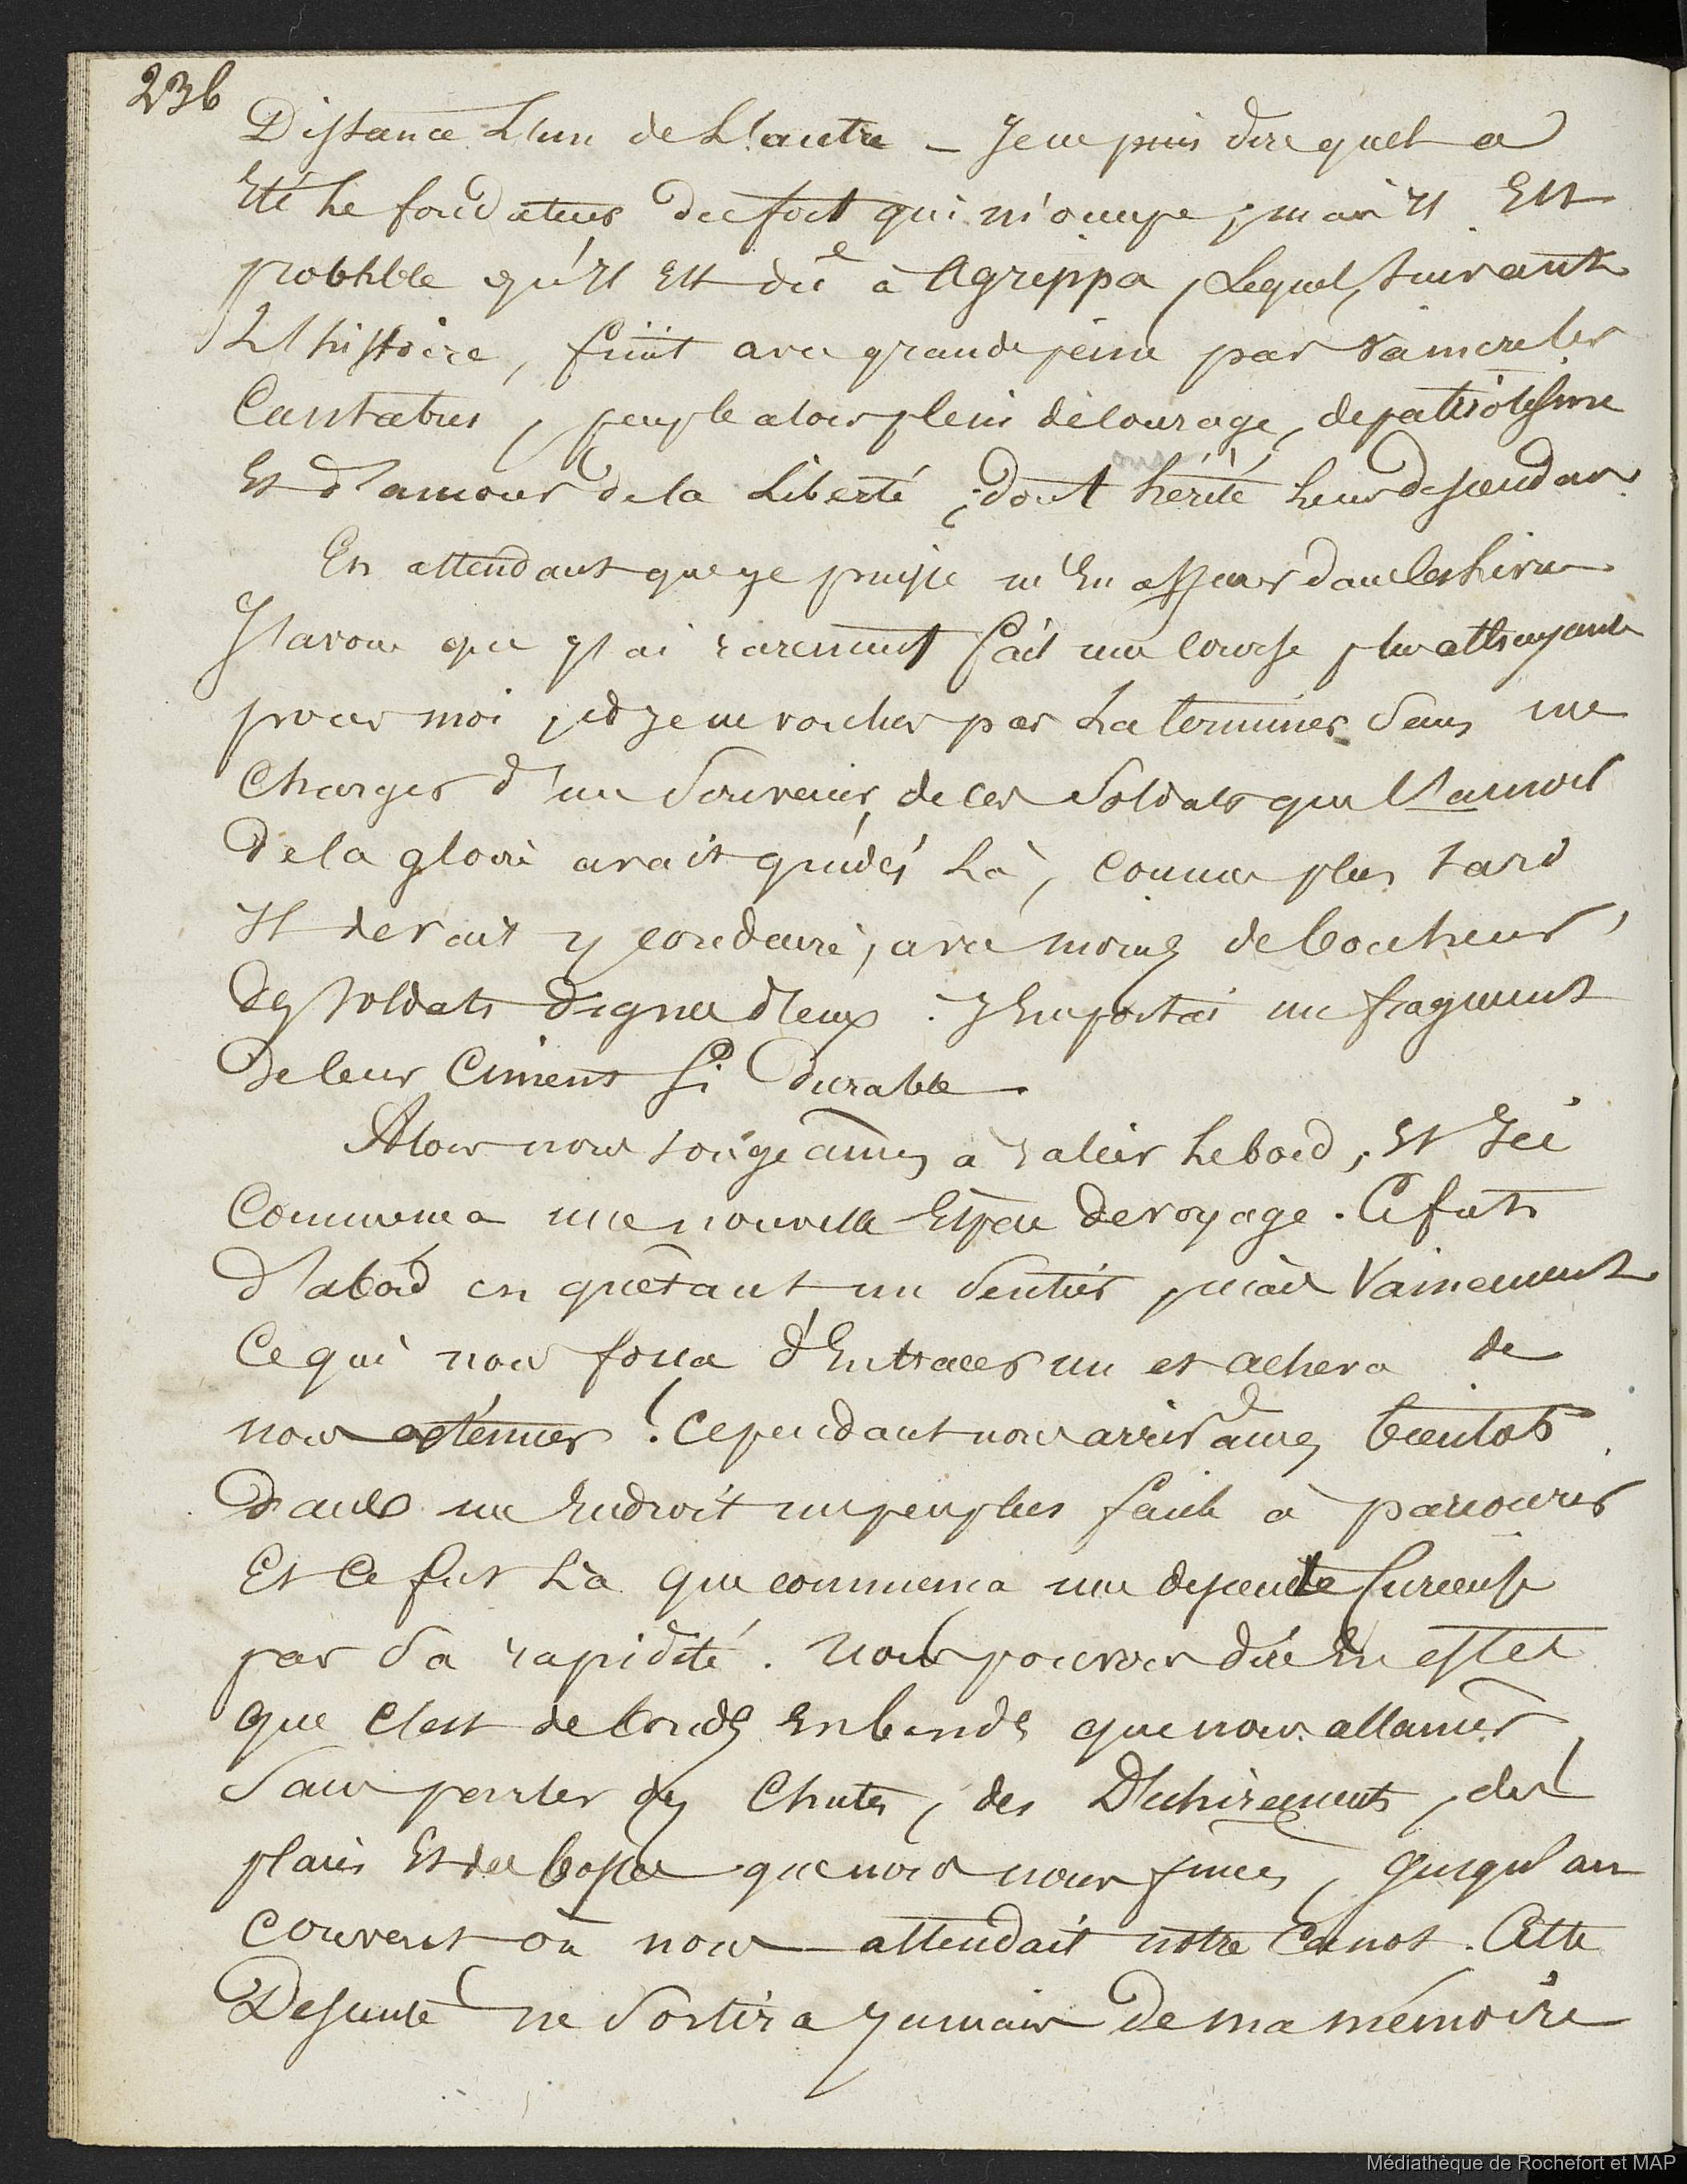 236
Distance L'un de L'autre – Je ne puis dire quel a
Eté Le fondateur du fort qui m'occupe, mais Il Est
probable qu'Il Est dû à Agrippa, Lequel, suivant
L'histoire, finit avec grande peine par vaincre les
Cantabres, peuple alors plein de courage, de patriotisme
Et d'amour de la Liberté, dont hérité Leurs descendans.
En attendant que je puisse m'En assurer dans les livres
J'avoue que j'ai rarement fait une course plus attrayante
pour moi, et je ne voulus pas La terminer sans me
Charger d'un Souvenir de ces Soldats que L'amour
De la gloire avait guidés Là, comme plus tard
Il devait y conduire, avec moins de bonheur,
Des soldats dignes d'eux. J'Emportai un fragment
De leur Ciment si Durable.
Alors nous songeâmes à rallier Le bord, Et Ici
Commença une nouvelle Espèce de voyage. Ce fut
D'abord en quêtant un Sentier, mais Vainement
Ce qui nous força d'En tracer un et acheva de
nous exténuer! Cependant nous arrivâmes bientôt
Dans un Endroit un peu plus facile à parcourir
Et Ce fut Là que commença une descente furieuse
par sa rapidité. Nous pouvons dire En effet
que c'est de bonds En bonds que nous allâmes,
Sans parler des Chutes, des Déchirements, des
plaies Et des bosses que nous nous fîmes, Jusqu'au
couvent où nous attendait notre Canot. Cette
Descente ne Sortira Jamais De ma mémoire
Médiathèque de Rochefort et MAP